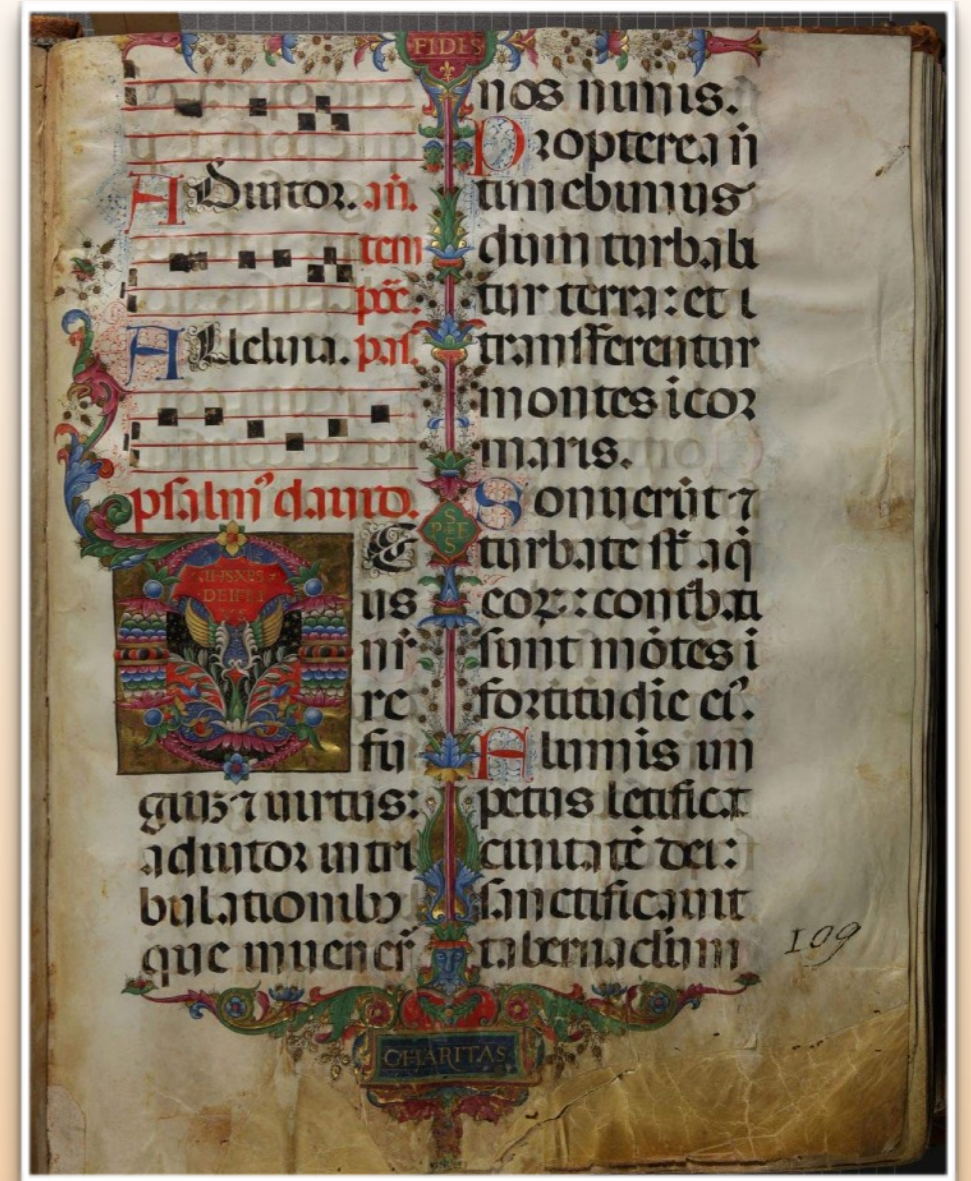 FIDES
Adiutor. añ.
tem
pōe:
Alleluia. pal.
psalmꝰ dauid.
DE
IHSXPS
us
nr̄
re
fu
giuꝫ ⁊ uirtus:
adiutor in tri
bulationibꝫ
que inuener̄
SPES
nos nimis.
Propterea ñ
timebimus
dum turbabi
tur terra: et i
transferentur
montes i cor
maris.
Sonuerūt ⁊
turbate st̄ aq̄
coꝝ: contb̄ati
sunt mōtes i
fortitudie eiꝰ.
Flumis im
petus letificat
ciuitatē dei:
sanctificauit
tabernaclum
CHARITAS
109